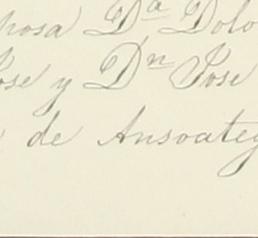 posa Dª Dolo
ose y Dⁿ Jose
de Ansoateg